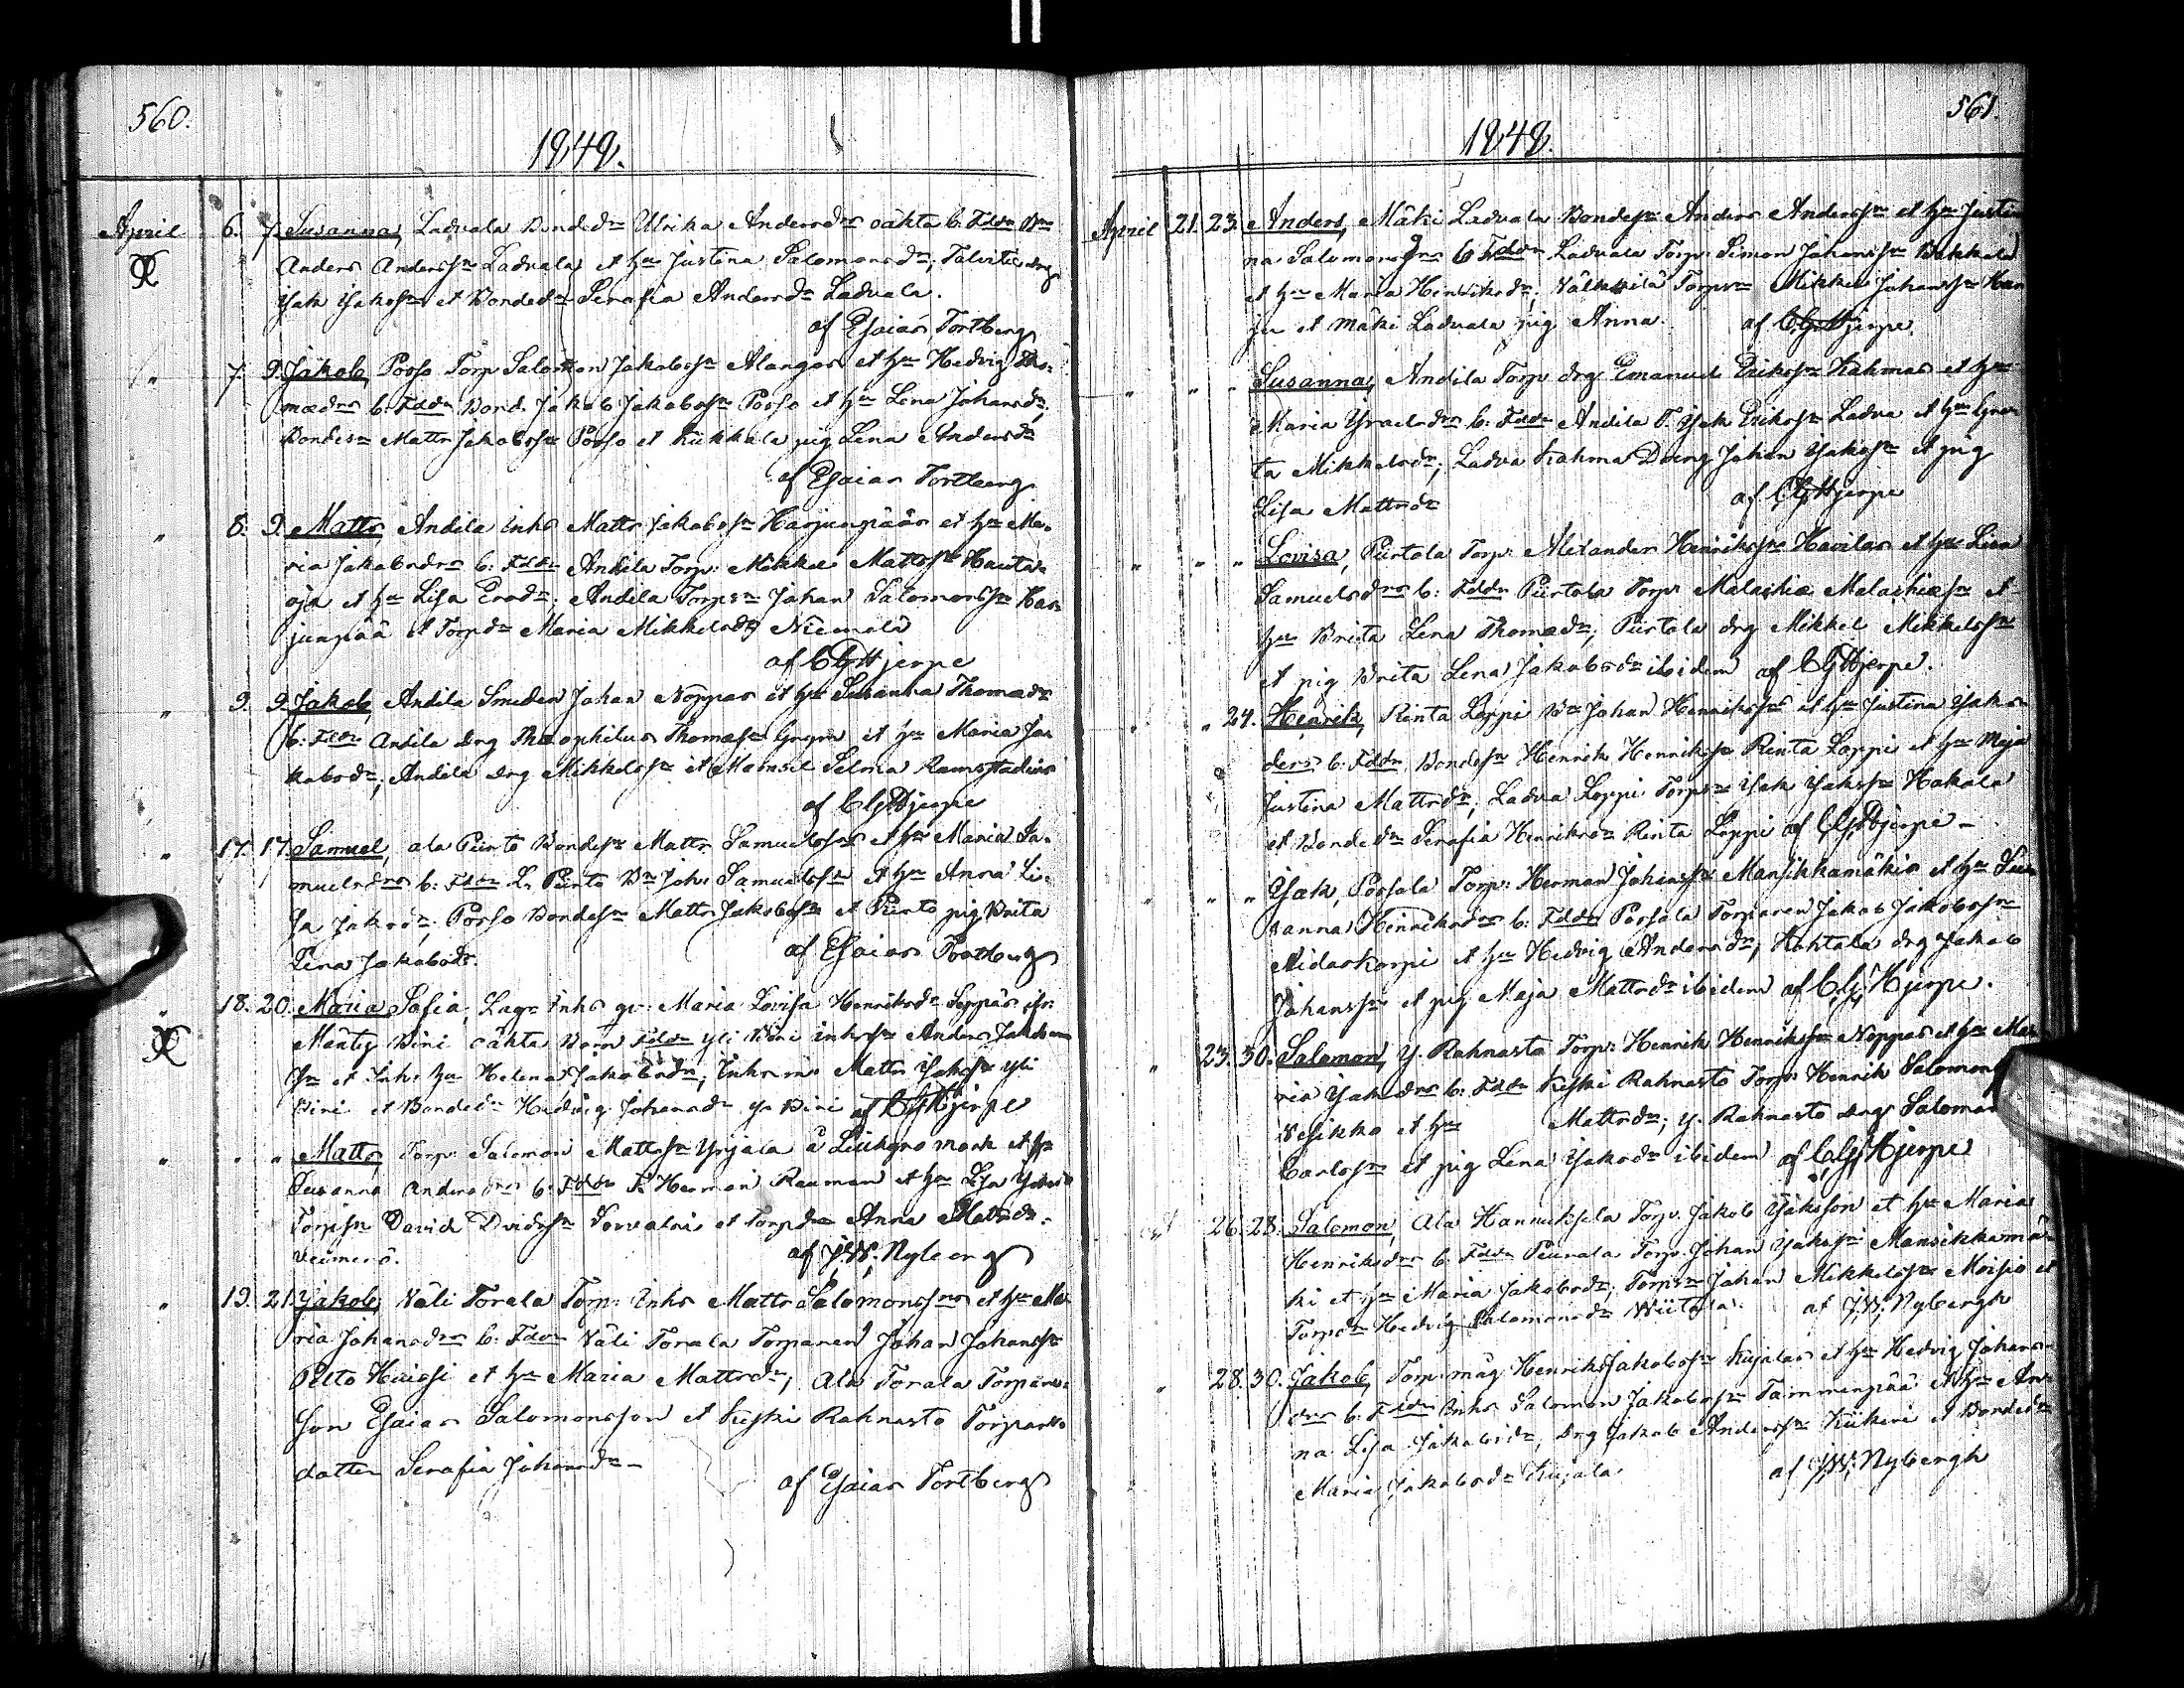 560.
1848.
April 6. 7. Susanna, Ladvala Bondedr Ulrika Andersdrs oäkta b. Fddr Bn
Anders Anderssn Ladvala et hu Justina Salomonsdr, Talvitie drg
Isak Isakssn et Bondedr Serafia Andersdr Ladvala.
af Esaias Fortberg
" 7. 9. Jakob, Porso Torp Salomon Jakobssn Alangos et hu Hedvig Tho-
mædrs b. Fddr Bond. Jakob Jakobssn Porso et hu Lena Johansdr,
Bondesn Matts Jakobssn Porso et Kukkala pig Lena Andersdr
af Esaias Fortberg
" 8. 9. Matts, Andila Inhs Matts Jakobssn Harjunpääs et hu Ma-
ria Jakobsdrs b: Fddr Andila Torp: Mikkel Mattssn Hauta-
oja et hu Lisa Ersdr, Andila Torpsn Johan Salomonssn Har-
junpää et Torpdr Maria Mikkelsdr Niemala
af CGHjerpe
" 9. 9. Jakob, Andila Smeden Johan Noppas et hu Susanna Thomædrs
b: Fddr Andila drg Theophilus Thomæsn et hu Maria Ja-
kobsdr, Andila drg Mikkelssn et Mamsel Selma Ramstadius
af CGHjerpe
" 17. 17. Samuel, ala Piirto Bondesn Matts Samuelssns et hu Maria Sa-
muelsdrs b: Fddr L. Piirto Bn Joh: Samuelssn et hu Anna Li-
sa Jakosdr, Porso Bondesn Matts Jakobssn et Piirto pig Brita
Lena Jakobsdr.
af Esaias Fortberg
" 18. 20. Maria Sofia, Lagr Inhs qv: Maria Lovisa Henriksdr Seppäs ifr:
Mäntyviri oäkta barn Fddr yli Viri inhssn Anders Jakobs-
sn et Inhs hu Helena Jakobsdr, Inhs m. Matts Isakssn yli
Viri et Bondedr Hedvig Johansdr y. Viri af CGHjerpe
" " " Matts, Torp: Salomon Mattssn Yrjala à Liuhgro mark et hu
Susanna Andersdrs b: Fddr Herman Rauman et hu Lisa Isaksdr
Torpsn David Davidssn Torvalais et Torpdr Anna Mattsdr
af J.W. Nyberg
" 19. 21. Jakob, Väli Torala Torp: Inhs Matts Salomonssns et hu Ma-
ria Johansdrs b: Fddr Väli Torala Torparen Johan Johanssn
Pelto Huissi et hu Maria Mattsdr, Ala Torala Torpare-
son Esaias Salomonsson et Keski Rahnasto Torpare-
dotter Serafia Johansdr
af Esaias Fortberg
561.
1848.
April 21. 23. Anders, Mäki Ladvala Bondesn Anders Anderssn et hu Justi-
na Salomonsdrs b Fddr Ladvala Torp: Simon Johanssn Kukkala
et hu Maria Henriksdr, Välkkilä Torpsn Mikkel Johanssn Har-
ju et Mäki Ladvala pig Anna. af CGHjerpe
" " " Susanna, Andila Torp drg Emanuel Erikssn Kahmas et hu
Maria Israelsdrs b: Fddr Andila T. Isak Erikssn Ladva et hu Gre-
ta Mikkelsdr, Ladva Kahma Dreng Johan Isakssn et pig
Lisa Mattsdr
af CGHjerpe
" " " Lovisa, Piirtola Torp: Alexander Henrikssn Havilas et hu Lisa
Samuelsdrs b: Fddr Piirtola Torp: Malachias Malachiæsn et
hu Brita Lena Thomædr, Piirtola drg Mikkel Mikkelssn
et pig Brita Lena Jakobsdr ibidem af CGHjerpe.
" " 24. Henrik, Rinta Loppi Bn Johan Henrikssns et hu Justina Isaks-
ders b: Fddr, Bondesn Henrik Henrikssn Rinta Loppi et hu Maja
Justina Mattsdr, Ladva Loppi Torpsn Isak Isakssn Hakala
et Bondedr Serafia Henriksdr Rinta Loppi af CGHjerpe
" " " Isak, Porsala Torp: Herman Johanssn Mansikkamäkis et hu Su-
sanna Henriksdrs b: Fddr Porsala Torparen Jakob Jakobssn
Nidaskorpi et hu Hedvig Andersdr, Huhtala drg Jakob
Johanssn et pig Maja Mattsdr ibidem af C.G. Hjerpe.
" 23. 30. Salomon, Y. Rahnasto Torp: Henrik Henrikssn Noppas et hu Ma-
ria Isaksdrs b: Fddr Keski Rahnasto Torp: Henrik Salomons
Vesikko et hu Mattsdr, y. Rahnasto drg Salomon
Carlssn et pig Lena Isaksdr ibidem af C.G. Hjerpe
26. 28. Salomon, Ala Hannuksela Torp. Jakob Isaksson et hu Maria
Henriksdrs b: Fddr Peurala Torp. Johan Isakssn Mansikkamä-
ki et hu Maria Jakobsdr, Torpsn Johan Mikkelssn Moisio et
Torpdr Hedvig Salomonsdr Wiitala. af J.W. Nybergh
" 28. 30. Jakob, Torp. måg Henrik Jakobssn Kujalas et hu Hedvig Johans-
drs b: Fddr Inhs Salomon Jakobssn Tammenpää et hu An-
na Lisa Jakobsdr, drg Jakob Anderssn Kiikeri et Bondedr
Maria Jakobsdr Kujala
af J.W. Nybergh